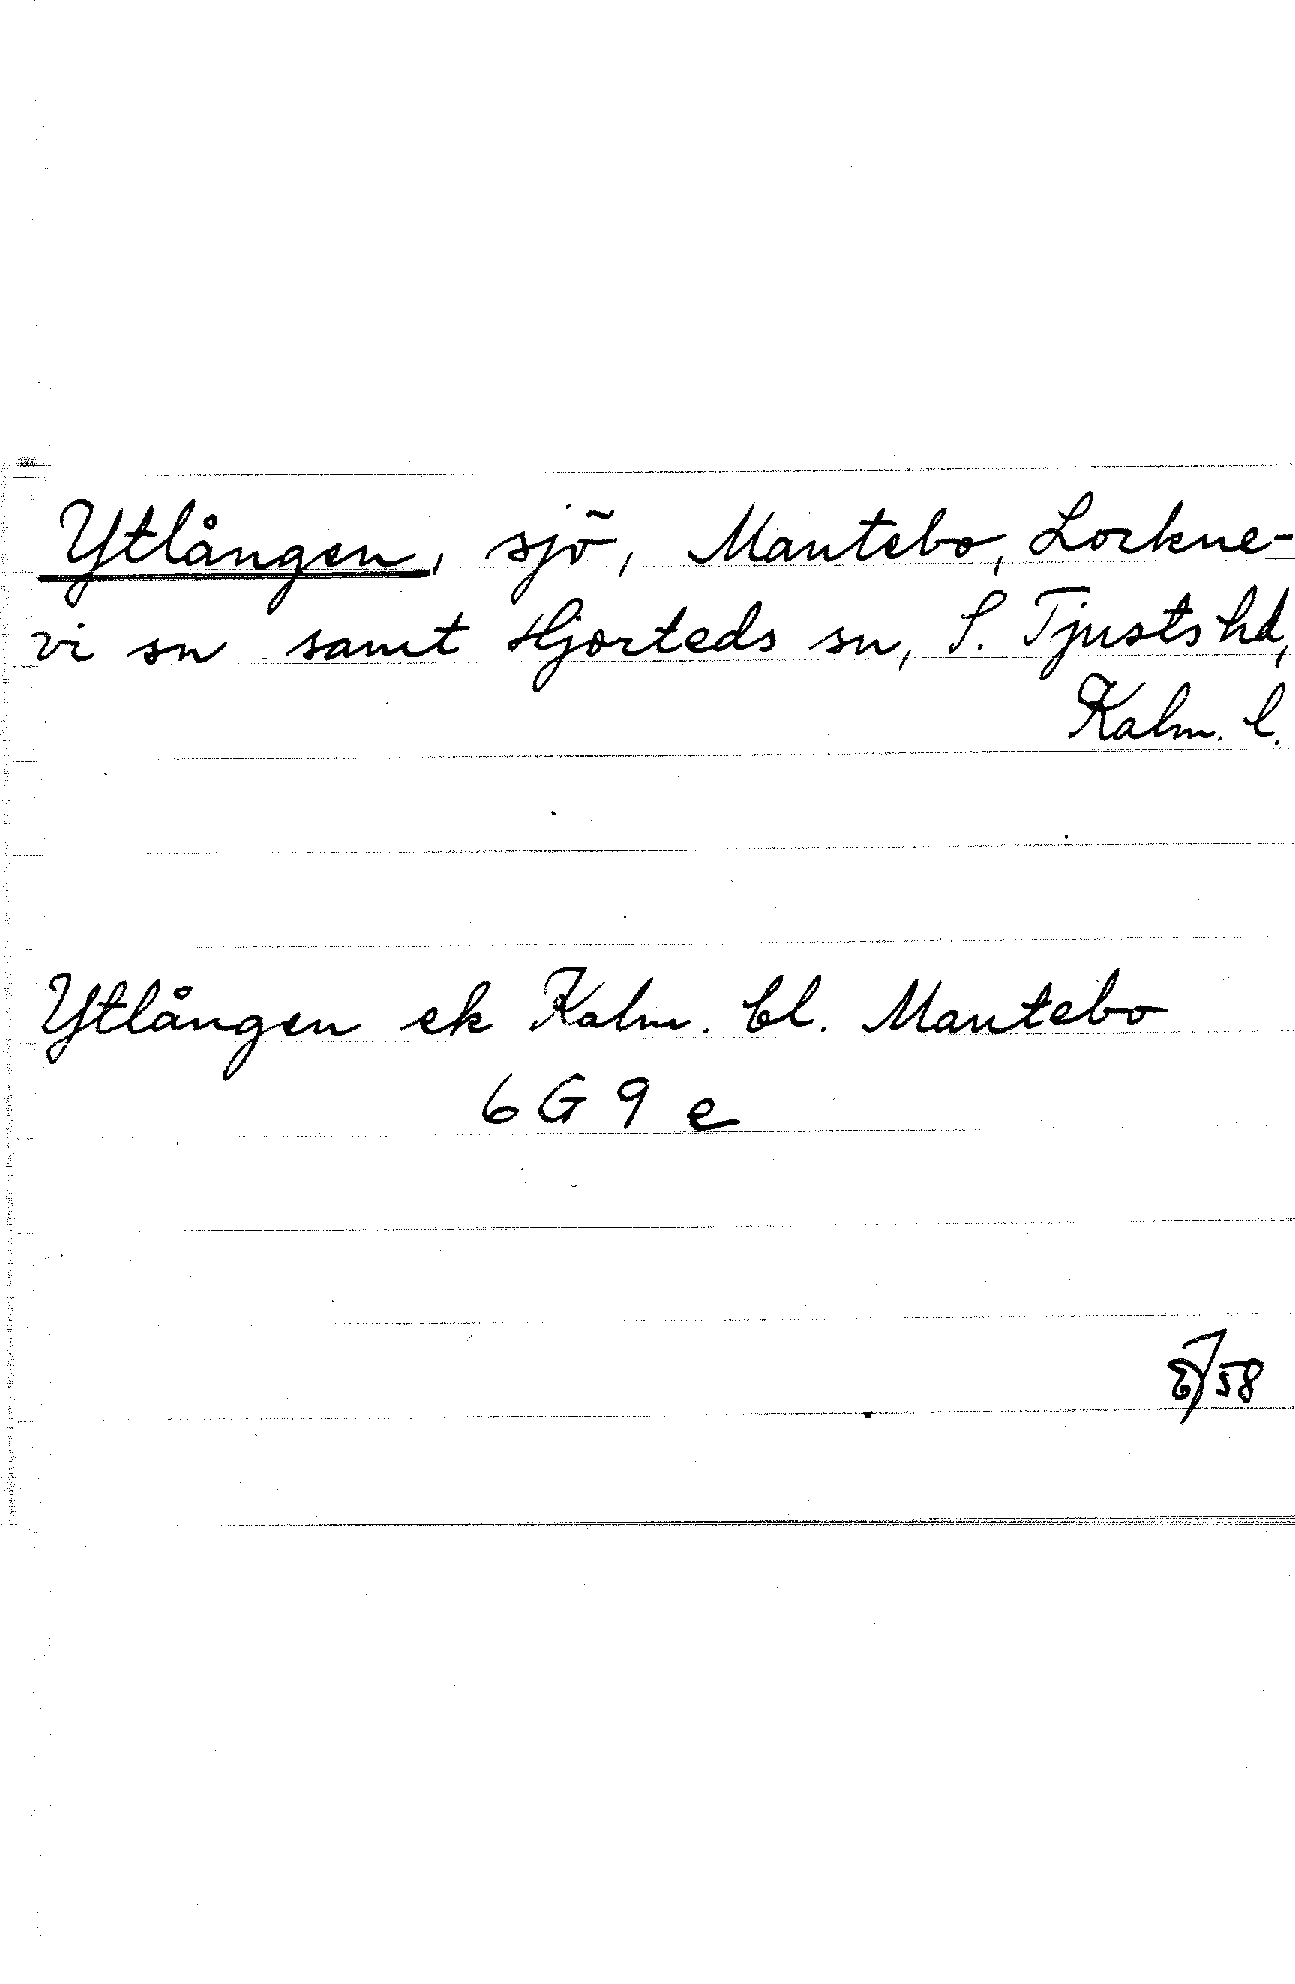 Ytlången, sjö, Mantebo, Lockne-
vi sn samt Hjorteds sn, S. Tjusts hd,
Kalm. l.
Ytlången ek Kalm. bl. Mantebo
6 G 9 e